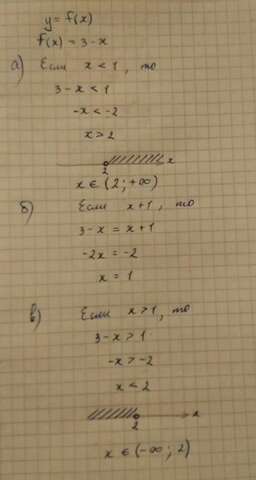 y = f(x)
f(x) = 3 - x
а) Если x < 1, то
3 - x < 1
-x < -2
x > 2
2 x
x ∈ (2; +∞)
б) Если x + 1, то
3 - x = x + 1
-2x = -2
x = 1
в) Если x > 1, то
3 - x > 1
-x > -2
x < 2
2 x
x ∈ (-∞; 2)